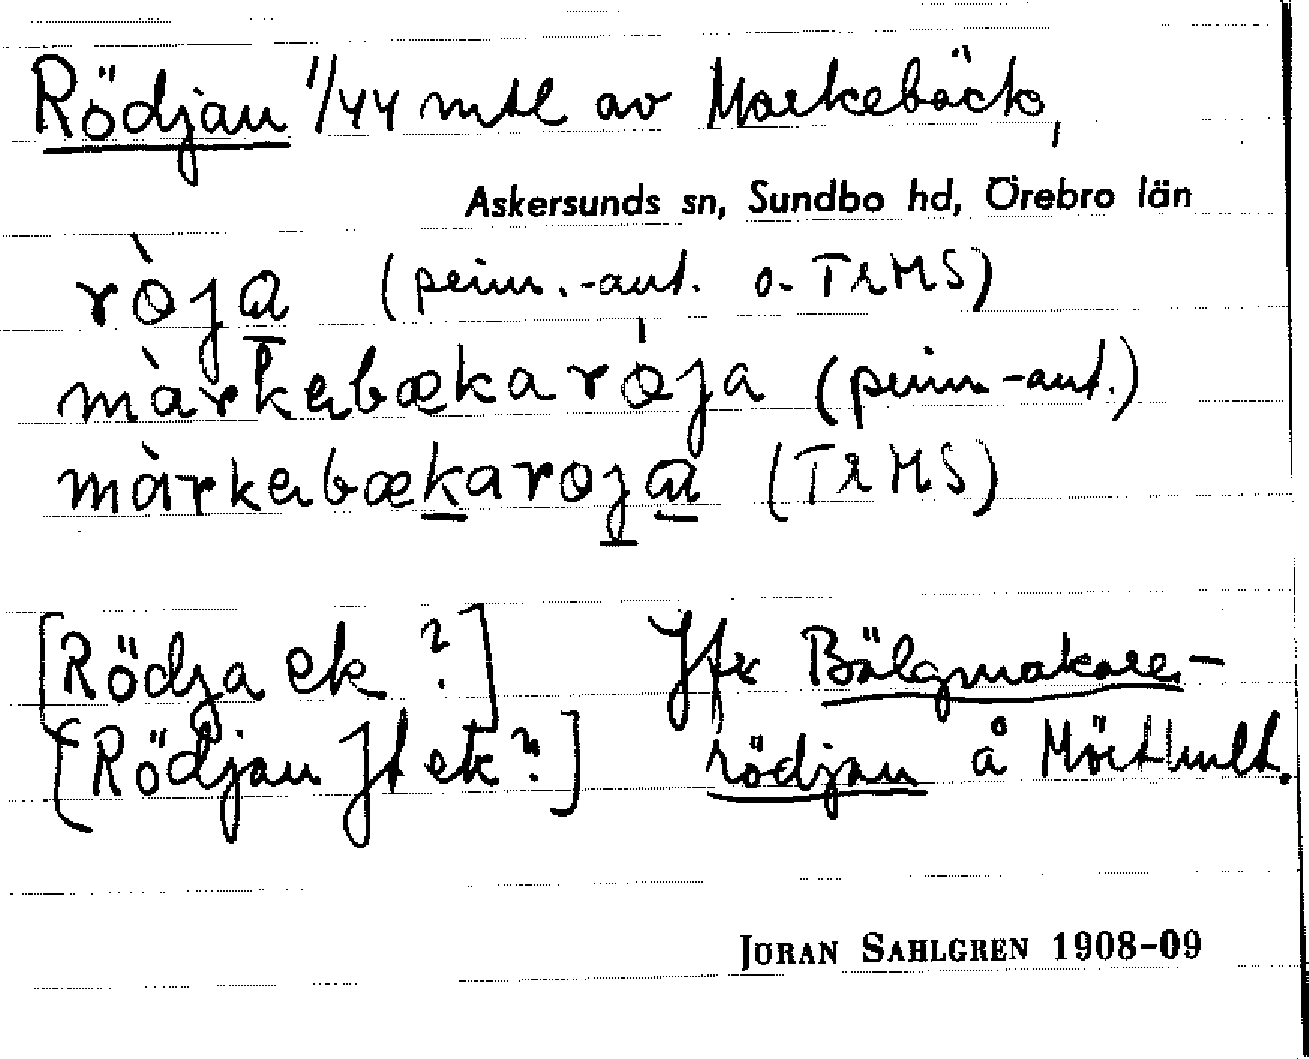 Rödjan 1/44 mtl av Markebäck,
Askersunds sn, Sundbo hd, Örebro län
ròja (prim.-ant. o. TRMS)
màrkebækaròja (prim-ant.)
màrkebækaroja (TRMS)
[Rödja ek ?] Jfr Bälgmakare-
[Rödjan Jt ek ?] rödjan å Mörthult.
JÖRAN SAHLGREN 1908-09